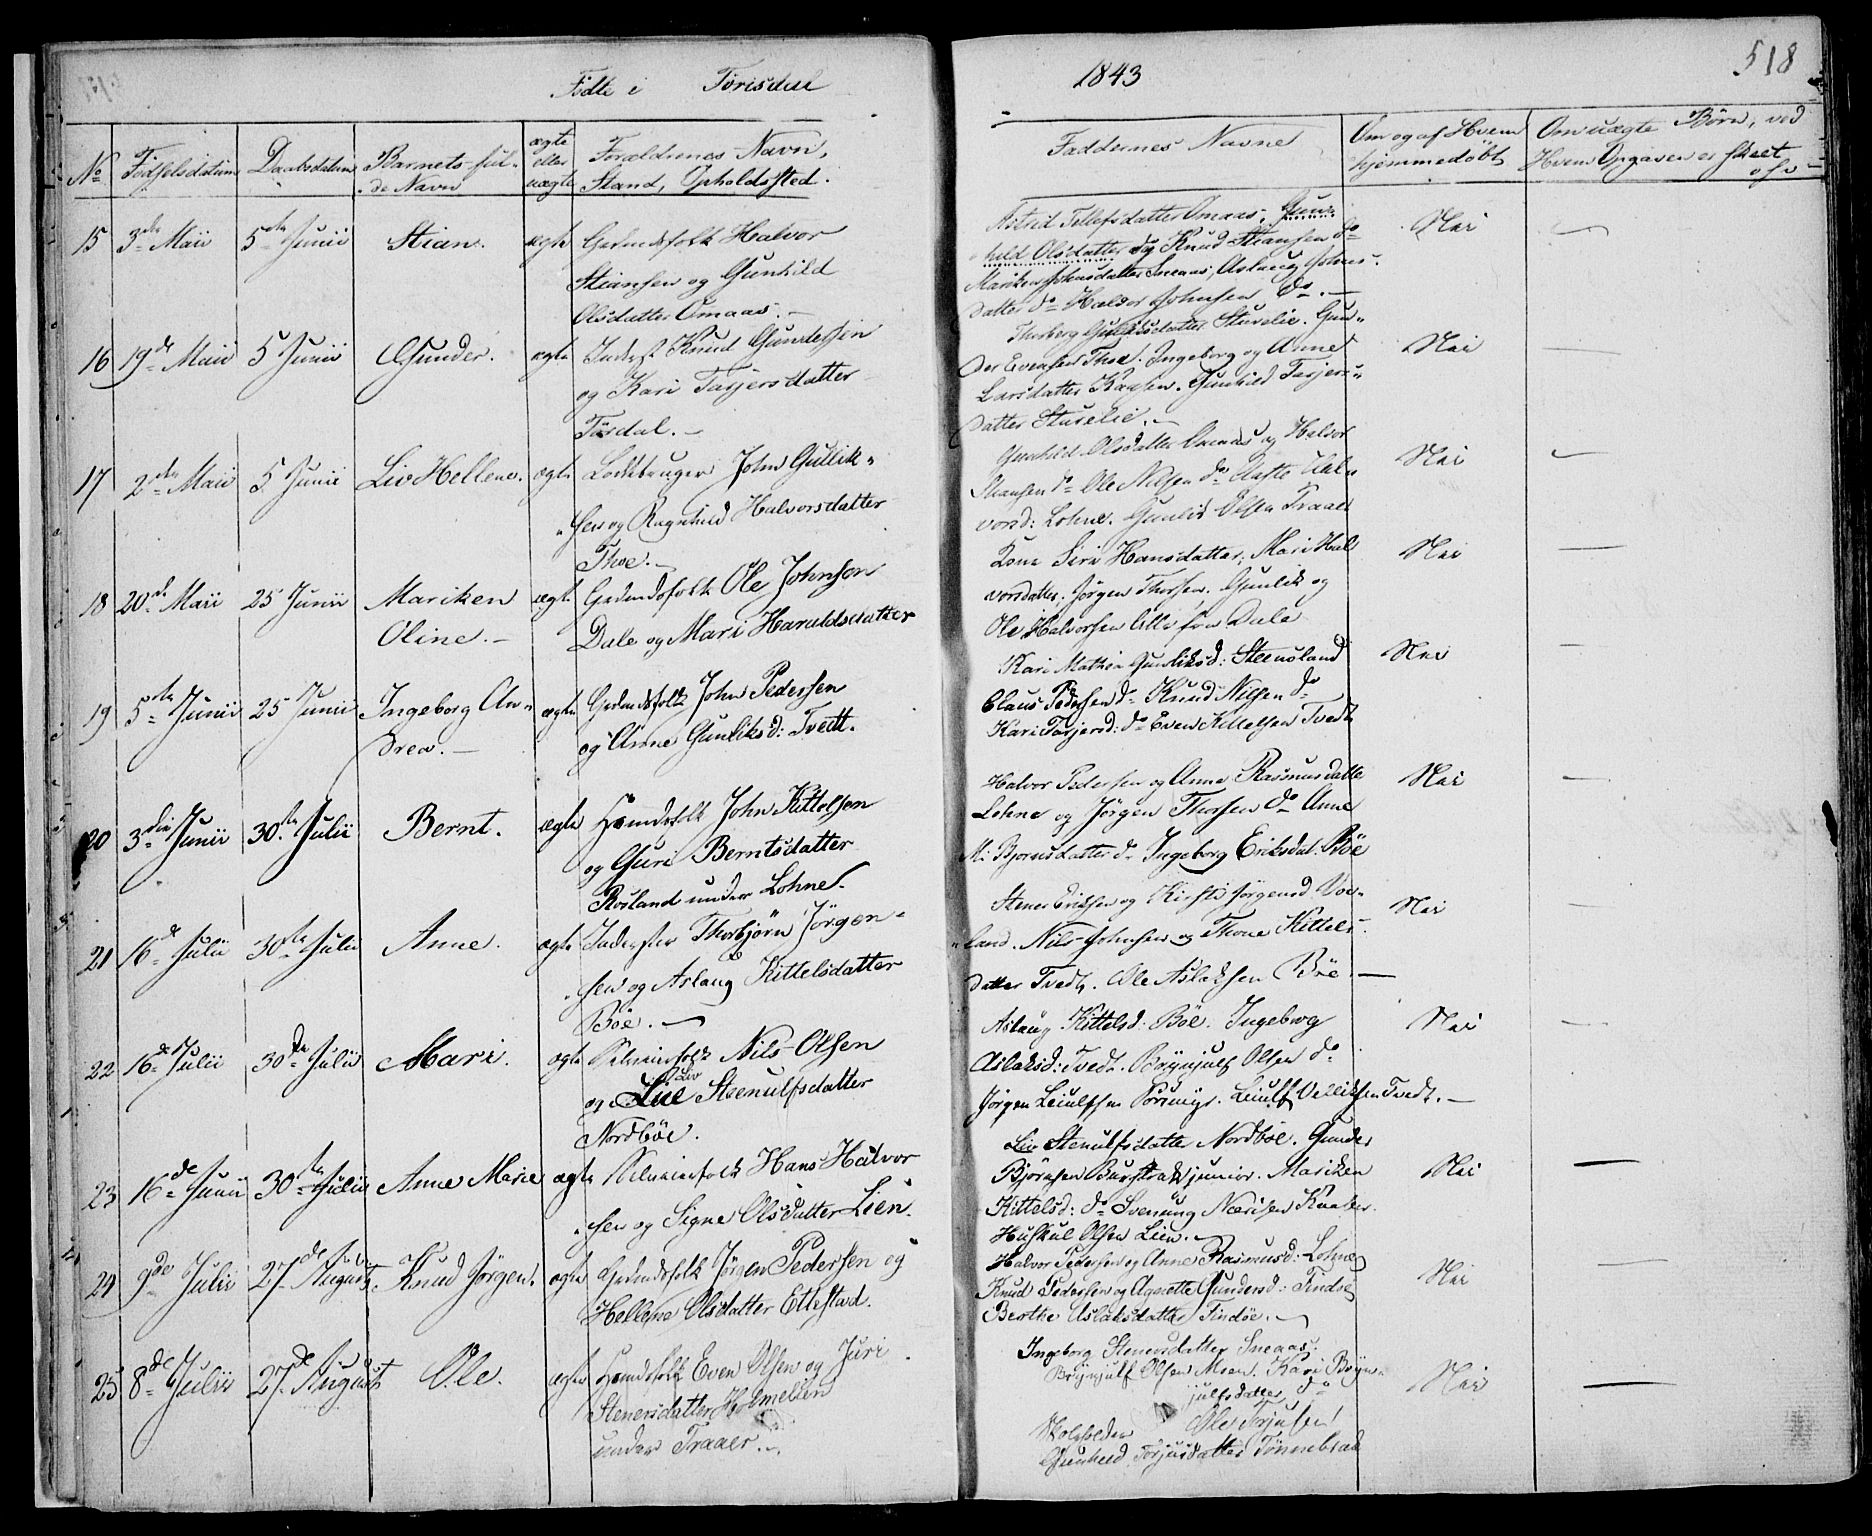 Födte i Törisdal
1843
518
No
Födselsdatum
Daabsdatum
Barnets ful-
de Navn
ægte
eller
uægte
Forældrenes Navn,
Stand, Opholdssted.
Faddernes Navne
Om og af Hvem
hjemmedöbt
Om uægte Börn, ved
Hvem Opgaven er skeet
15 3de Maii 5te Junii Stian. ægte Gaardsfolk Halvor
Stiansen og Gunhild
Olsdatter Omaas. -
Astrid Tellefsdatter Omaas, Gun-
hild Olsdatter og Knud Stiansen do
Mariken Johnsdatter Sneaas, Aslaug Johns-
datter do Halvor Johnsen do. -
Nei
16 19de Maii 5 Junii Gunder. ægte Inderst Knud Gundersen
og Kari Tarjersdatter
Tördal. -
Thorberg Gunliksdatter Sturelie. Gun-
der Evensen Thoe. Ingeborg og Anne
Larsdatter Kaasen. Gunhild Tarjers-
datter Sturelie. -
Nei
17 2den Maii 5 Junii Liv Hellene. ægte Lodsbruger John Gullik-
sen og Ragnhild Halvorsdatter
Thoe. -
Gunhild Olsdatter Omaas og Halvor
Stiansen do Ole Nilsen do Aaste Hal-
vorsd: Lohne. Gunlid Olsen Traaer
Nei
18 20de Maii 25 Junii Mariken
Oline. -
ægte Gaardsfolk Ole Johnsen
Dale og Mari Haraldsdatter
Kone Siri Hansdatter, Mari Hal
vorsdatter. Jörgen Thorsen. Gunlik og
Ole Halvorsen Alle fra Dale
Nei
19 5te Junii 25 Junii Ingeborg An-
drea. -
ægte Gaardsfolk John Pedersen
og Anne Gunliksd: Tvedt.
Kari Mathea Gunliksd: Steensland
Claus Pedersen do Knud Nilsen do
Kari Tarjersd: do Even Kittelsen Tvedt
Nei
20 3die Junii 30te Julii Bernt. ægte Huusmandsfolk John Kittelsen
og Guri Berntsdatter
Rosland under Lohne.
Halvor Pedersen og Anne Rasmusdatte
Lohne og Jörgen Thorsen do Anne
M: Bjornsdatter do Ingeborg Eriksdat: Böe
Nei
21 16de Julii 30te Julii Anne. ægte Inderster Thorbjörn Jörgen-
sen og Aslaug Kittelsdatter
Böe. -
Stener Eriksen og Kirsti Jörgensd
land. Nils Johnsen og Thone Kittels-
datter Tvedt. Ole Aslaksen Böe. -
Nei
22 16de Julii 30te Julii Mari. ægte Selveierfolk Nils Olsen
og Liv Steenulfsdatter
Nordböe.
Aslaug Kittelsd: Böe. Ingeborg
Aslaksd: Tvedt. Brynjulf Olsen do
Jörgen Leiulfsen Leiulf Tvedt. -
Nei
23 16de Junii 30te Julii Anne Marie ægte Selveierfolk Hans Halvor
sen og Signe Olsdatter Lien.
Liv Stenulfsdatter Nordböe. Gunder
Björnsen junior. Mariken
Kittelsd: do Svenung Kaasen.
Olsen Lien. -
Nei
24 9de Julii 27de August. Knud Jörgen. ægte Gaardsfolk Jörgen Pedersen og
Hellene Olsdatter Ettestad.
Halvor Pedersen og Anne Rasmusd: Lohne
Knud Pedersen og Agnette Gundersd: Findöe
Berthe Aslaksdatter Findöe. -
Nei
25 8de Julii 27de August Ole. ægte Huusmandsfolk Even Olsen og Juri
Stenersdatter Holmelien
under Traaer. -
Ingeborg Stenersdatter Sneaas.
Brynjulf Olsen Moen. Kari Bryn-
julfsdatter do
Ole Torjusen
Gunhild Torjusdatter Tönnebrae
Nei